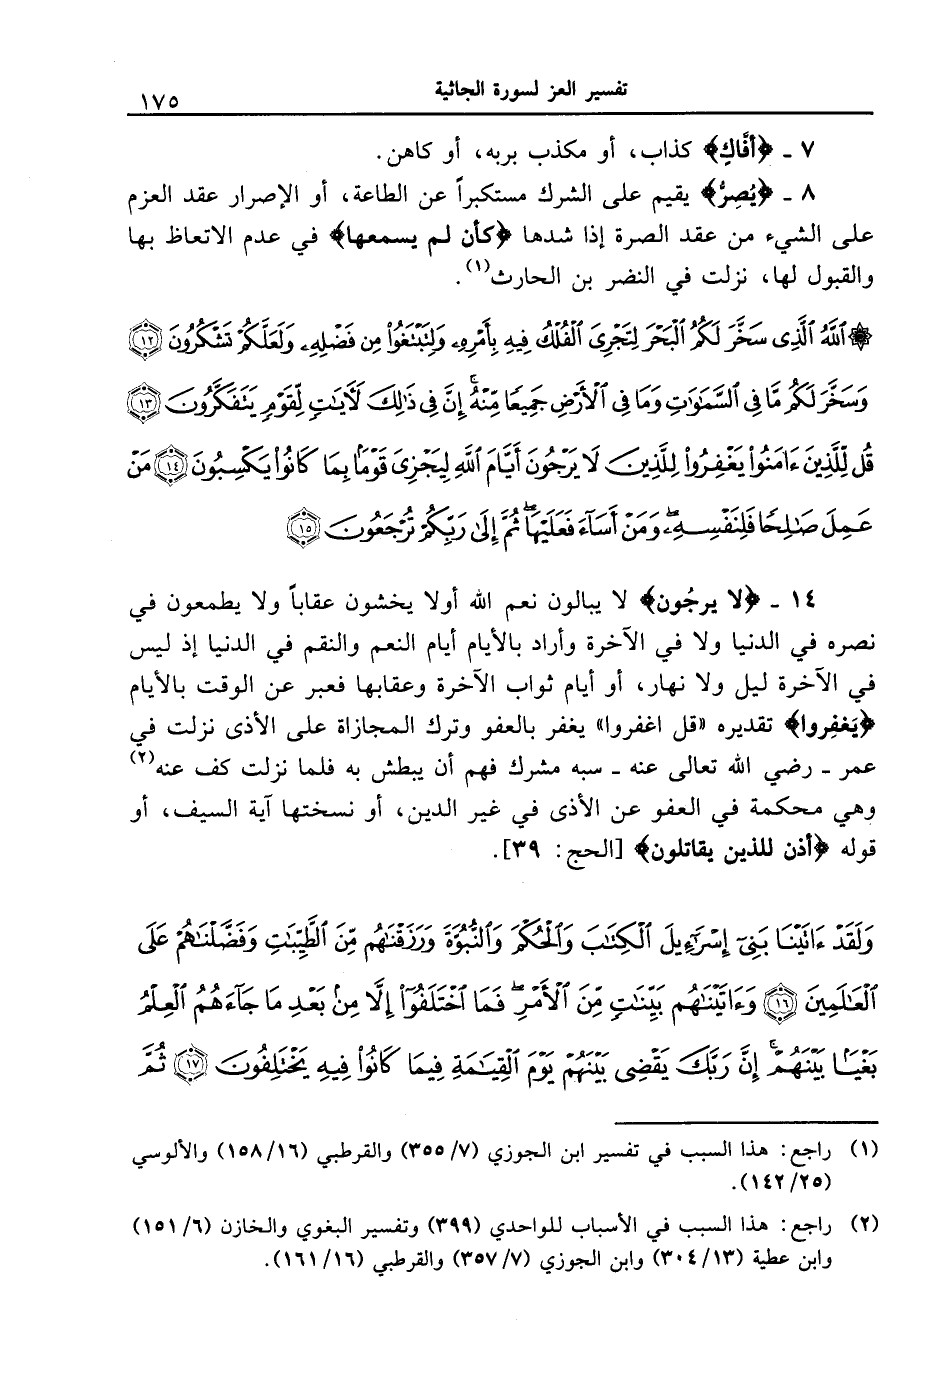 تفسير العز لسورة الجاثية
١٧٥
٧ ـ ﴿أفَّاكٍ﴾ كذاب، أو مكذب بربه، أو كاهن.
٨ ـ ﴿يُصِرُّ﴾ يقيم على الشرك مستكبراً عن الطاعة، أو الإصرار عقد العزم
على الشيء من عقد الصرة إذا شدها ﴿كأن لم يسمعها﴾ في عدم الاتعاظ بها
والقبول لها، نزلت في النضر بن الحارث(١).
۞ ٱللَّهُ ٱلَّذِى سَخَّرَ لَكُمُ ٱلْبَحْرَ لِتَجْرِىَ ٱلْفُلْكُ فِيهِ بِأَمْرِهِۦ وَلِتَبْتَغُوا۟ مِن فَضْلِهِۦ وَلَعَلَّكُمْ تَشْكُرُونَ ﴿١٢﴾
وَسَخَّرَ لَكُم مَّا فِى ٱلسَّمَٰوَٰتِ وَمَا فِى ٱلْأَرْضِ جَمِيعًا مِّنْهُ ۚ إِنَّ فِى ذَٰلِكَ لَءَايَٰتٍ لِّقَوْمٍ يَتَفَكَّرُونَ ﴿١٣﴾
قُل لِّلَّذِينَ ءَامَنُوا۟ يَغْفِرُوا۟ لِلَّذِينَ لَا يَرْجُونَ أَيَّامَ ٱللَّهِ لِيَجْزِىَ قَوْمًۢا بِمَا كَانُوا۟ يَكْسِبُونَ ﴿١٤﴾ مَنْ
عَمِلَ صَٰلِحًا فَلِنَفْسِهِۦ ۖ وَمَنْ أَسَآءَ فَعَلَيْهَا ۖ ثُمَّ إِلَىٰ رَبِّكُمْ تُرْجَعُونَ ﴿١٥﴾
١٤ ـ ﴿لا يرجُون﴾ لا يبالون نعم الله أولا يخشون عقاباً ولا يطمعون في
نصره في الدنيا ولا في الآخرة وأراد بالأيام أيام النعم والنقم في الدنيا إذ ليس
في الآخرة ليل ولا نهار، أو أيام ثواب الآخرة وعقابها فعبر عن الوقت بالأيام
﴿يَغفِروا﴾ تقديره «قل اغفروا» يغفر بالعفو وترك المجازاة على الأذى نزلت في
عمر ـ رضي الله تعالى عنه ـ سبه مشرك فهم أن يبطش به فلما نزلت كف عنه(٢)
وهي محكمة في العفو عن الأذى في غير الدين، أو نسختها آية السيف، أو
قوله ﴿أذن للذين يقاتلون﴾ [الحج: ٣٩].
وَلَقَدْ ءَاتَيْنَا بَنِىٓ إِسْرَٰٓءِيلَ ٱلْكِتَٰبَ وَٱلْحُكْمَ وَٱلنُّبُوَّةَ وَرَزَقْنَٰهُم مِّنَ ٱلطَّيِّبَٰتِ وَفَضَّلْنَٰهُمْ عَلَى
ٱلْعَٰلَمِينَ ﴿١٦﴾ وَءَاتَيْنَٰهُم بَيِّنَٰتٍ مِّنَ ٱلْأَمْرِ ۖ فَمَا ٱخْتَلَفُوٓا۟ إِلَّا مِنۢ بَعْدِ مَا جَآءَهُمُ ٱلْعِلْمُ
بَغْيًۢا بَيْنَهُمْ ۚ إِنَّ رَبَّكَ يَقْضِى بَيْنَهُمْ يَوْمَ ٱلْقِيَٰمَةِ فِيمَا كَانُوا۟ فِيهِ يَخْتَلِفُونَ ﴿١٧﴾ ثُمَّ
(١) راجع: هذا السبب في تفسير ابن الجوزي (٣٥٥/٧) والقرطبي (١٥٨/١٦) والألوسي
(١٤٢/٢٥).
(٢) راجع: هذا السبب في الأسباب للواحدي (٣٩٩) وتفسير البغوي والخازن (١٥١/٦)
وابن عطية (٣٠٤/١٣) وابن الجوزي (٣٥٧/٧) والقرطبي (١٦١/١٦).